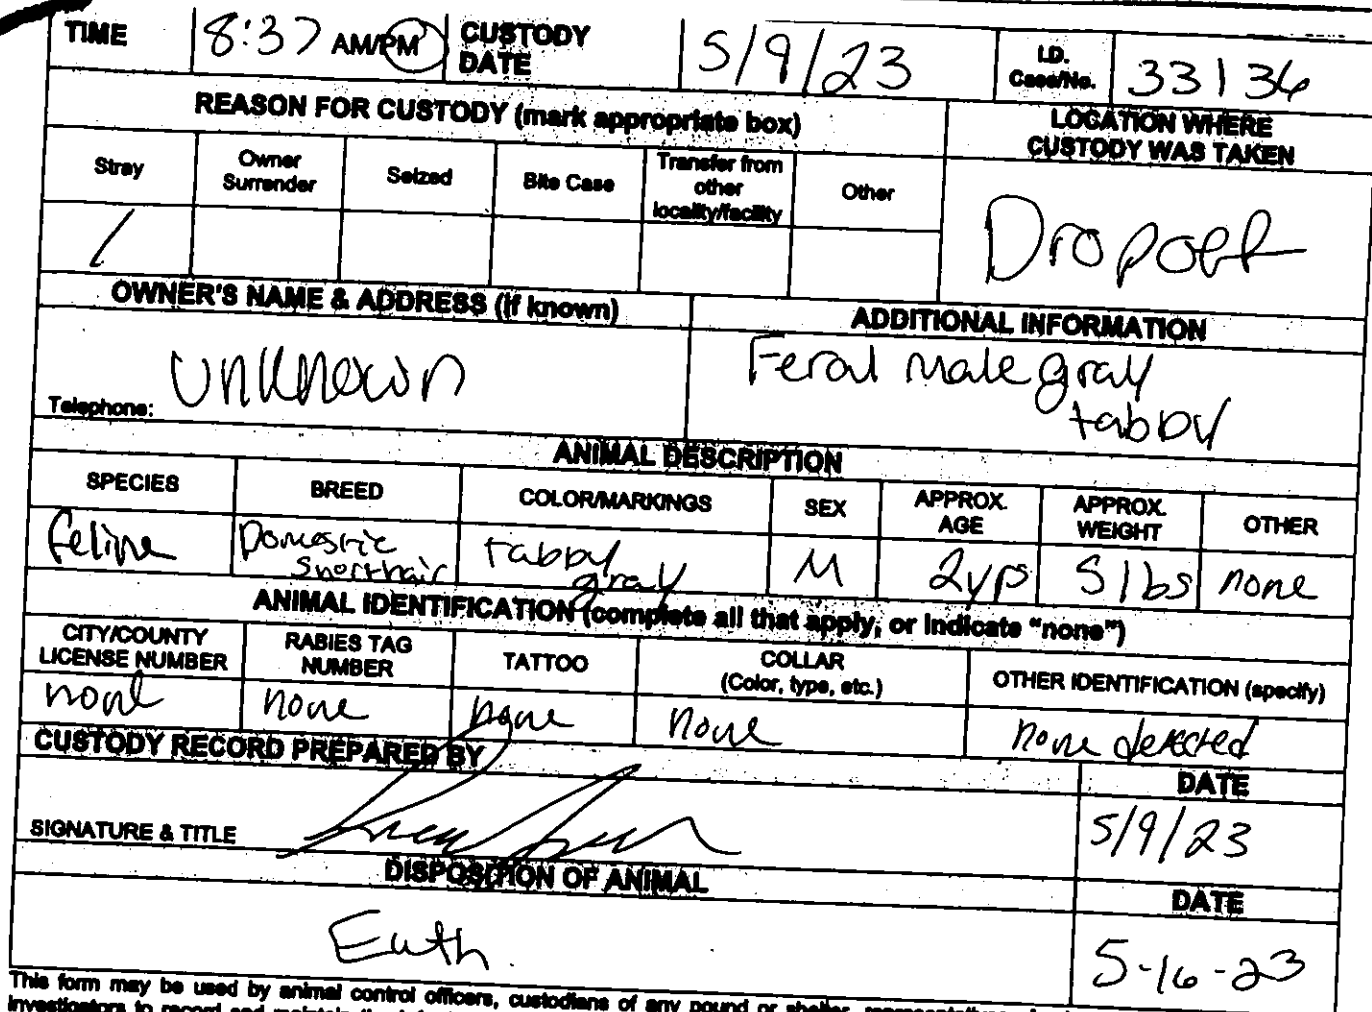 TIME 8:37 AM/PM CUSTODY DATE 5/9/23 I.D. Case/No. 33136
REASON FOR CUSTODY (mark appropriate box)
LOCATION WHERE CUSTODY WAS TAKEN
Stray
Owner Surrender
Seized
Bite Case
Transfer from other locality/facility
Other
/
Dropoff
OWNER'S NAME & ADDRESS (if known)
ADDITIONAL INFORMATION
unknown
Telephone:
Feral male gray
tabby
ANIMAL DESCRIPTION
SPECIES BREED COLOR/MARKINGS SEX APPROX. AGE APPROX. WEIGHT OTHER
feline Domestic shorthair tabby gray M 2yrs 5lbs none
ANIMAL IDENTIFICATION (complete all that apply, or indicate "none")
CITY/COUNTY LICENSE NUMBER
RABIES TAG NUMBER
TATTOO
COLLAR (Color, type, etc.)
OTHER IDENTIFICATION (specify)
none none none none none detected
CUSTODY RECORD PREPARED BY
DATE
SIGNATURE & TITLE
5/9/23
DISPOSITION OF ANIMAL
DATE
Euth.
5-16-23
This form may be used by animal control officers, custodians of any pound or shelter, representatives
investigators to record and maintain